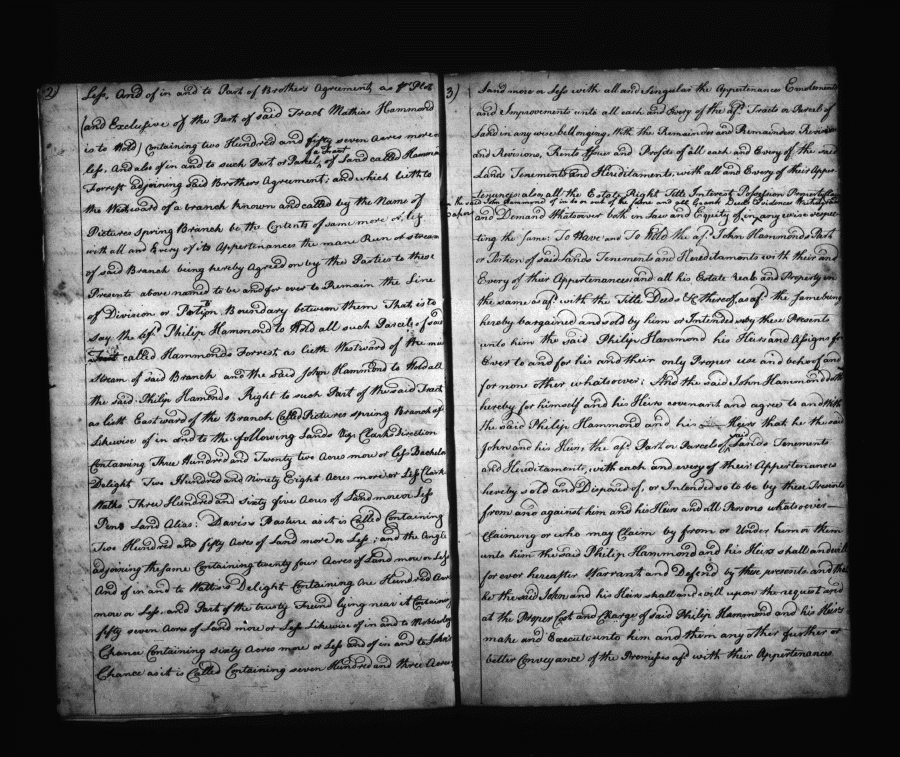 2)
Less, And of in and to Part of Brothers Agreement, as Pr Plot
(and Exclusive of the Part of said Tract Mathias Hammond
is to Hold) Containing two Hundred and fifty seven Acres more or
less. And also of in and to such Part or Parcel of a Tract of Land called Hammonds
Forrest adjoining said Brothers Agreement; and which lieth to
the Westward of a branch known and called by the Name of
Pictures Spring Branch be the Contents of same more or less
with all and Every of its Appertenances the main Run or stream
of said Branch being hereby Agreed on by the Parties to these
Presents above named to be and for ever to Remain the Line
of Division or Partion Boundary between them That is to
say the sd. Philip Hammond to Hold all such Parcels of said
Tract called Hammonds Forrest, as lieth Westward of the main
stream of said Branch and the said John Hammond to Hold all
the said Philip Hamonds Right to such Part of the said Tract
as lieth Eastward of the Branch Called Pictures spring Branch afd.
Likewise of in and to the following Lands Viz. Clarks direction
Containing Three Hundred and Twenty two Acres more or less Bachelors
Delight Two Hundred and Ninety Eight Acres more or Less Clark
Walks Three Hundred and Sixty five Acres of Land more or Less
Pens Land Alias: Davis's Pasture as it is Called Containing
Two Hundred and fifty Acres of Land more or Less; and the Angle
adjoining the same Containing twenty four Acres of Land more or Less
And of in and to Watts's Delight Containing One Hundred Acres
more or Less, and Part of the trusty Freind lying near it Containing
fifty seven Acres of Land more or Less Likewise of in and to
Chance Containing sixty Acres more or Less and of in and to John's
Chance as it is Called Containing seven Hundred and three Acres
3)
Land more or Less with all and Singular the Appertenances Emolument
and Improvements unto all each and Every of the afd. Tracts or Parcels of
Land in any wise belonging, With the Remainder and Remainders Reversion
and Revisions, Rents Issues and Profits of all each and Every of the said
Lands Tenements and Hereditaments, with all and Every of their Apper
tenances also all the Estate Right Title Interest Possession Property Claim
the said John Hammond of in to or out of the same and all Grants Deeds Evidences
papers
and Demand Whatsoever both in Law and Equity of in any wise respec
ting the same: To Have and To Hold the afd. John Hammonds Part
or Portion of said Lands Tenements and Hereditaments with their and
Every of their Appertenances and all his Estate Reals and Property in
the same as afd. with the Title Deeds &c thereof, as afd. the same being
hereby bargained and sold by him or Intended so by these Presents
unto him the said Philip Hammond his Heirs and Assigns for
Ever to and for his and their only Proper use and behoof and
for none other whatsoever: And the said John Hammond doth
hereby for himself and his Heirs covenant and agree to and With
the said Philip Hammond and his Heirs that he the said
John and his Heirs, the afd. Part or Parcels of said Lands Tenements
and Hereditaments, with each and every of their Appertenances
hereby sold and Disposed of, or Intended so to be by these Presents
from and against him and his Heirs and all Persons whatsoever
Claiming or who may Claim by from or Under him or them
unto him the said Philip Hammond and his Heirs shall and will
for ever hereafter Warrant and Defend by these presents and that
he the said John and his Heirs shall and will upon the request and
at the Proper Cost and Charge of said Philip Hammond and his Heirs
make and Execute unto him and them any other further or
better Conveyance of the Premisses afd. with their Appertenances